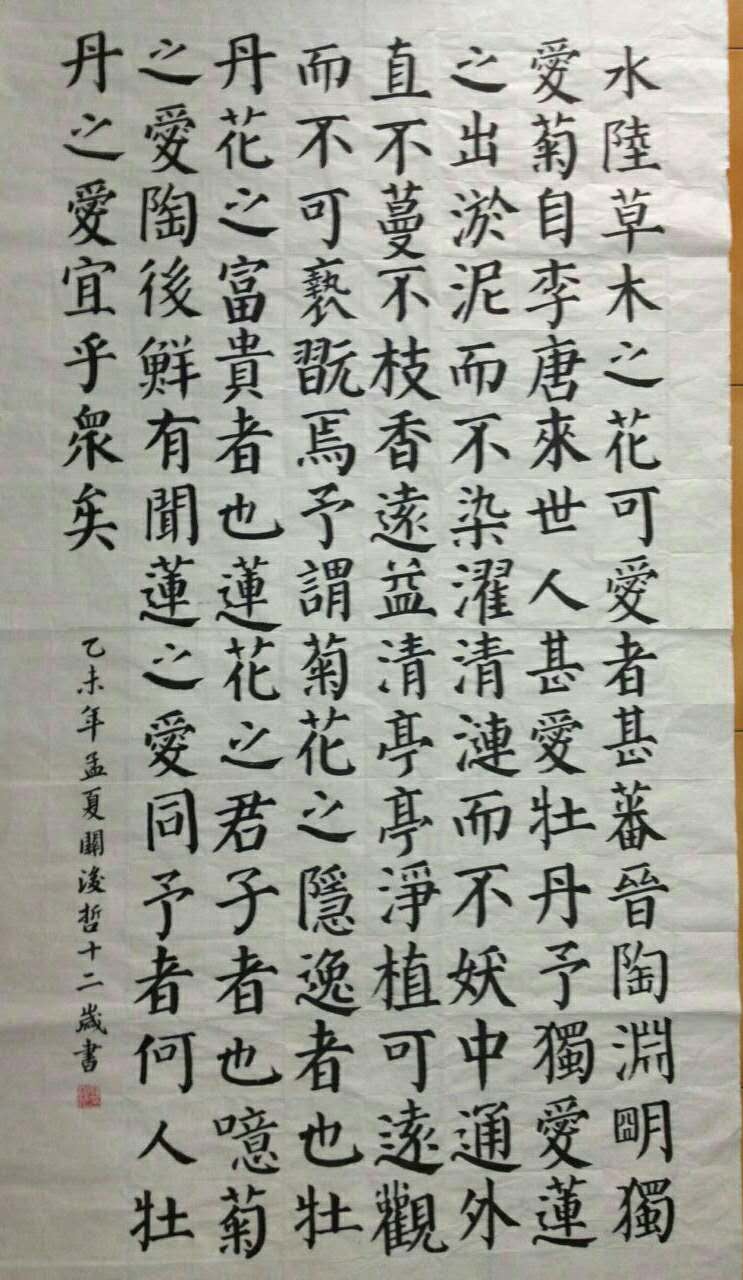 水陸草木之花可愛者甚蕃晉陶淵明獨
愛菊自李唐來世人甚愛牡丹予獨愛蓮
之出淤泥而不染濯清漣而不妖中通外
直不蔓不枝香遠益清亭亭淨植可遠觀
而不可褻翫焉予謂菊花之隱逸者也牡
丹花之富貴者也蓮花之君子者也噫菊
之愛陶後鮮有聞蓮之愛同予者何人牡
丹之愛宜乎眾矣
乙未年孟夏關浚哲十二歲書